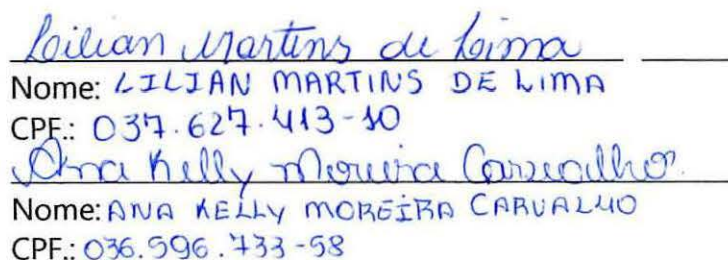 Lilian Martins de Lima
Nome: LILIAN MARTINS DE LIMA
CPF.: 037.627.413-10
Ana Kelly Moreira Carvalho
Nome: ANA KELLY MOREIRA CARVALHO
CPF.: 036.596.733-58